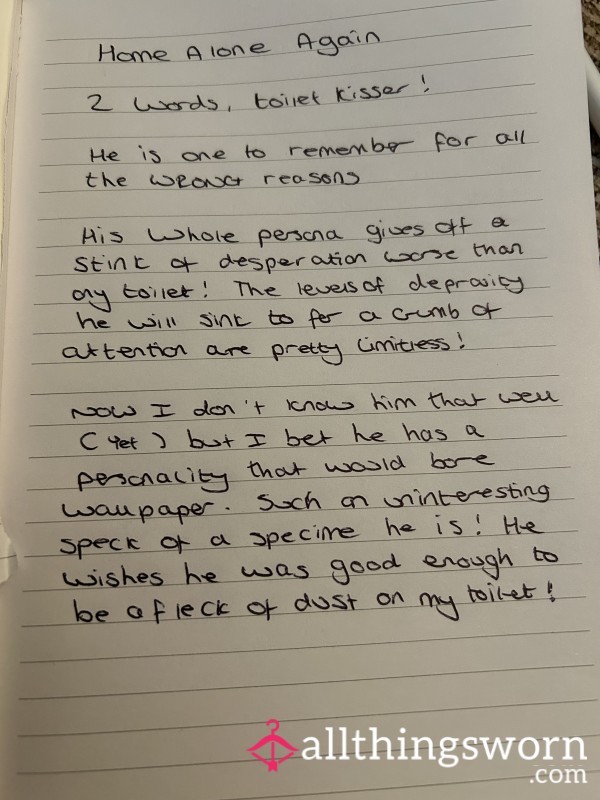 Home Alone Again
2 words, toilet kisser!
He is one to remember for all
the WRONG reasons
His whole persona gives off a
stink of desperation worse than
my toilet! The levels of depravity
he will sink to for a crumb of
attention are pretty limitless!
Now I don't know him that well
(yet) but I bet he has a
personality that would bore
wallpaper. Such an uninteresting
speck of a specime he is! He
wishes he was good enough to
be a fleck of dust on my toilet!
allthingsworn
.com